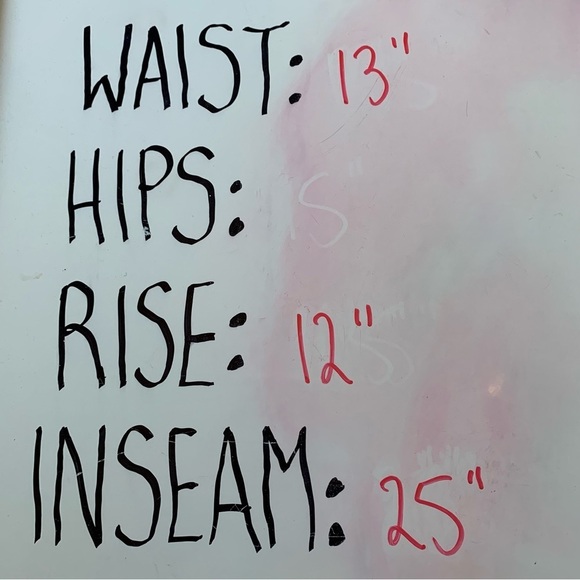 WAIST: 13"
HIPS:
RISE: 12"
INSEAM: 25"